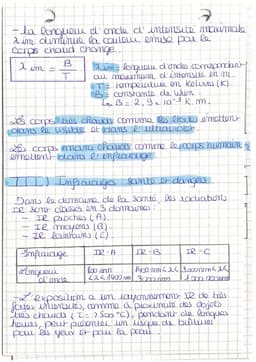 - la longueur d'onde d'intensité maximale
λm diminue la couleur émise par le
corps chaud change.
λm = B/T
λm = longueur d'onde correspondant
au maximum d'intensité en m.
T = température en Kelvin (K).
B = constante de Wien
B = 2,9 x 10⁻³ K.m.
Les corps très chauds comme les étoiles émettent
dans le visible et dans l'ultraviolet.
Les corps moins chauds comme le corps humain
émettent dans l'infrarouge.
III) Infrarouges santé et danger
Dans le domaine de la santé, les radiations
IR sont classées en 3 domaines :
- IR proches (A).
- IR moyens (B).
- IR lointains (C).
Infrarouge IR-A IR-B IR-C
Longueur 1400 nm < λ < 3000 nm < λ <
d'onde < λ < 1400 nm 3000 nm
- L'exposition à un rayonnement IR de très
fortes intensités, comme à proximité des objets
très chauds (T = > 500°C), pendant de longues
heures, peut présenter un risque de brûlures
pour les yeux et pour la peau.